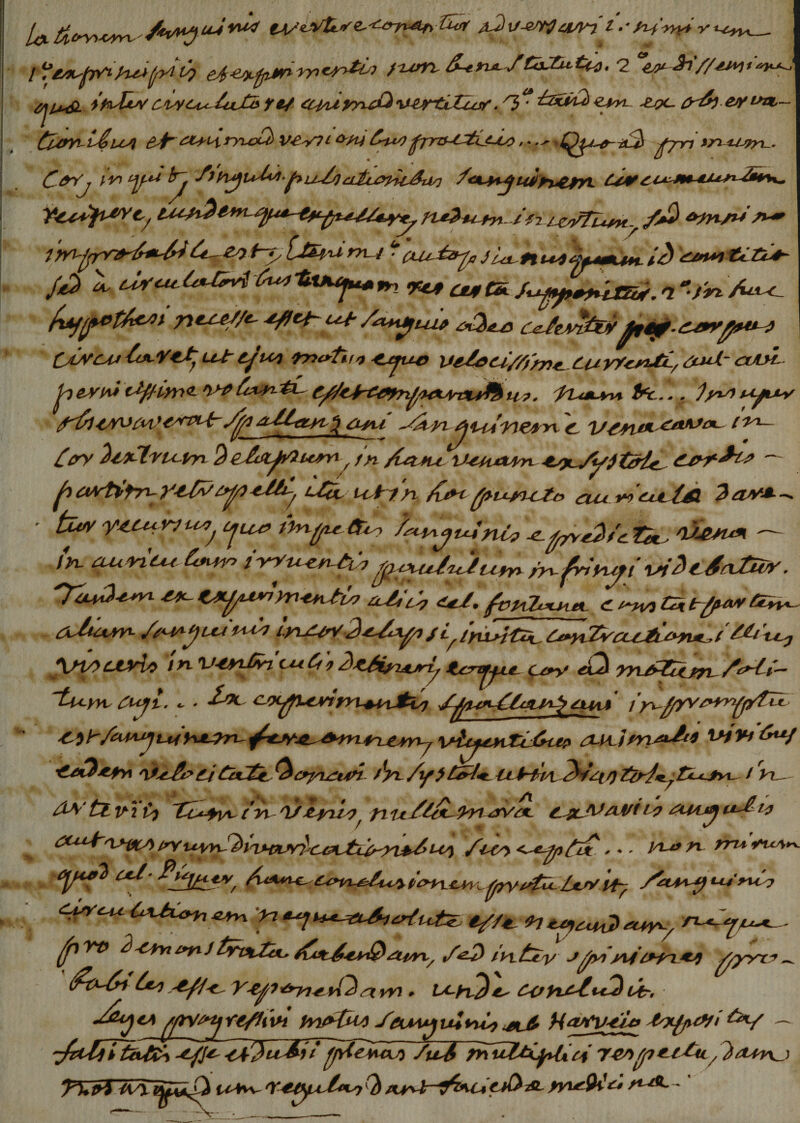 lationem sanguinis evertere conantur adversarii: nimirum
1.º ex principiis et experimentis non bene statutis. 2.º ex dissensione
quæ inter circulatores animadvertitur. 3.º tandem ex observa-
tionibus et animadversionibus practicis.... Quo ad primum.
Cor, inquit, singulis pulsationibus sanguinem circumeuntem
recipere, eundemque expellere, nedum incertum, sed omnino
improbabile est; Etenim 1.º autopsia nusquam id constitit
sed à circulatoribus tanquam res certa supponitur. 2.º in hac
hypothesi necesse esset ut sanguis adeo celeriter per corpus
circularet, ut ejus motus equo velocissime currenti, aut avi
pernicissime volanti esset comparandus. Nam &c... Insuper
observaverat Spallanzani sanguinem è vena cava in
Cor dextrum delapsum, in hanc venam ex systole cordis -
partim retropelli, ita ut in hoc puncto auriculæ dare-
tur recursus, quo impetus sanguinis e predicta vena -
in auriculam irruentis paululum infringi videbatur.
Tandem ex experimentis aliis cel. fontana constat partem
aliam sanguinis in cor delapsi, invita contractione illius
visceris in ventriculis detineri, eoque cor ad motum soli-
tum agi... Ex experimentis Spallanzani in promptu
est sanguinem fere omnem, vigentibus animalis viribus
eadem velocitate donari in systole ut in diastole, tum in
arteriis tum in venis, nullâ morâ ex variis angulis
aut vasorum divaricationibus susceptâ... non mirum
quod cel. Piquer, hanc conclusionem protulerit, sanguinis
circulationem neque absolute esse negandam, neque
pro demonstrata habendam, sed inter opiniones pro-
babiles esse reponendam. unde concludit.
Leges progressivi motus sanguinis ab Harveio expositas -
falsitatis esse et dubii plenas sub multiplici respectu, dam
nosasque dum regulas dant faciendæ medicinæ.